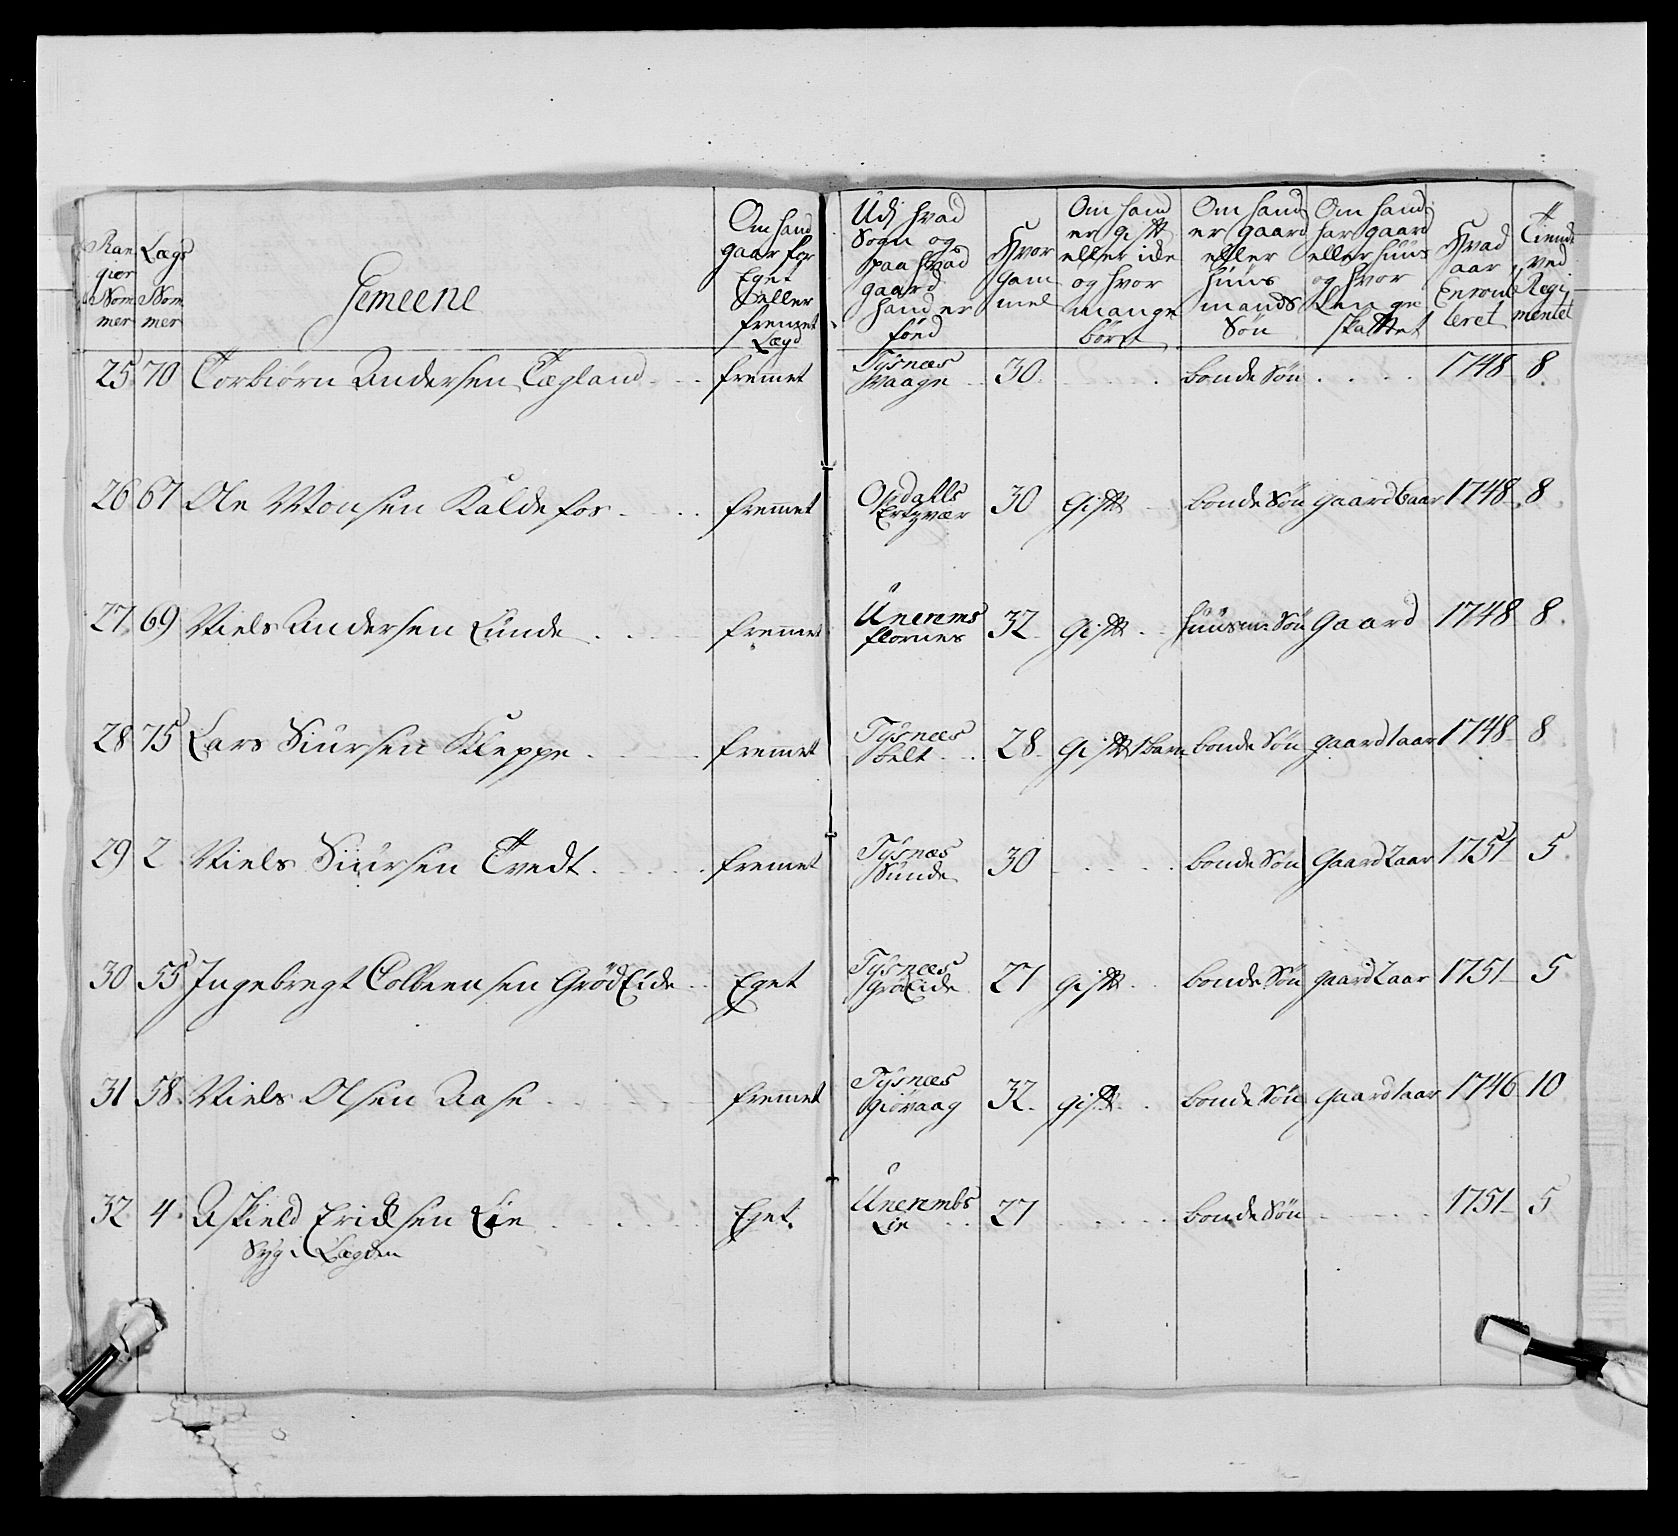 Ran gier Nom mer | Lægs Nom mer | Gemeene | Om hand gaar for Eget eller fremet Lægd | Udj hvad Sogn og paa hvad gaard hand er föed | Hvor gam mel | Om hand er gift eller ide og hvor mange börn | Om hand er gaard eller huus mands Sön | Om hand har gaard eller huus og hvor Lenge skattet | Hvad aar Enroul leret | Tiendt ved Regi mentet
25 70 Torbiörn Andersen Tægland fremmet Tÿsnæs Waage 30 bonde Sön 1748 8
26 67 Ole Monsen Kaldefos fremmet Opdalls 30 Gift bonde Sön gaard 6aar 1748 8
27 69 Niels Andersen Lunde fremmet Unerems flornes 32 Gift huusm Sön Gaard 1748 8
28 75 Lars Siursen Kleppe fremmet Tÿsnæs belt 28 Gift 1 barn bonde Sön gaard 1aar 1748 8
29 2 Niels Siursen Tvedt fremet Tÿsnæs Sunde 30 bonde Sön Gaard 2aar 1751 5
30 55 Ingebregt Colbeensen GrödEide Eget Tÿsnæs GröEide 27 gift bonde Sön gaard 2aar 1751 5
31 58 Niels Olsen Aase fremmet Tÿsnæs Giövaag 32 gift bonde Sön gaard 1aar 1746 10
32 4 Askield Ericksen Lie Eget Unerembs Lie 27 bonde Sön 1751 5
Syg i Lægden